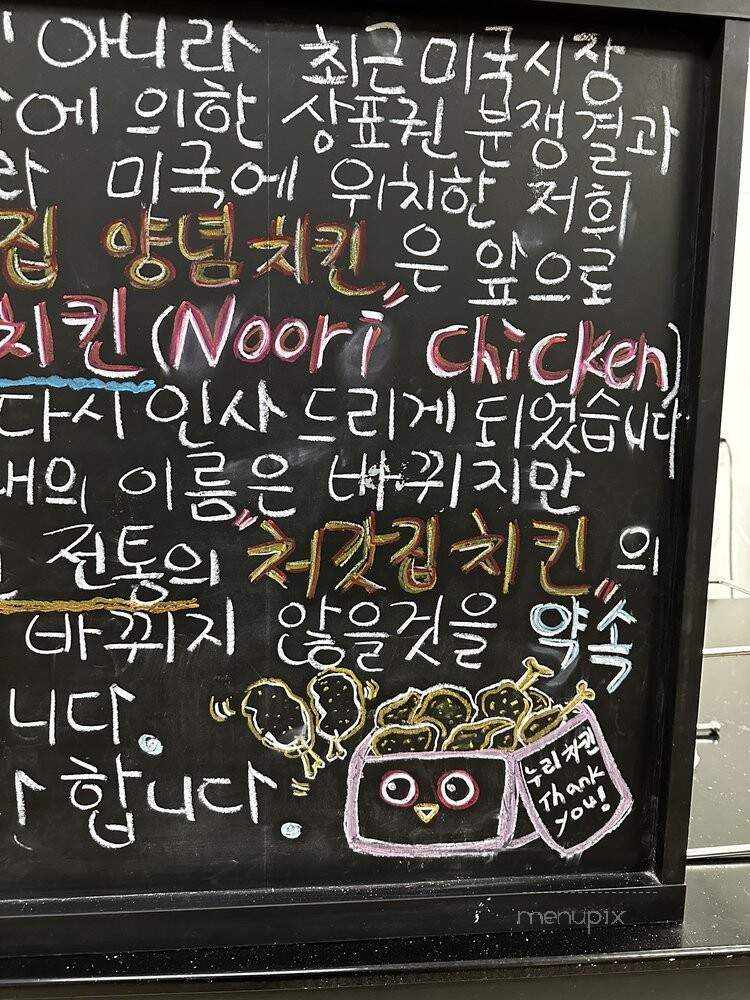 아니라 최근 미국시장
에 의한 상표권 분쟁결과
라 미국에 위치한 저희
집 양념치킨"은 앞으로
치킨(Noori" chicken)
다시 인사 드리게 되었습니다
의 이름은 바뀌지만
전통의 "처갓집치킨"의
바뀌지 않을것을 약속
니다.
합니다.
누리치킨
Thank
you!
menupix